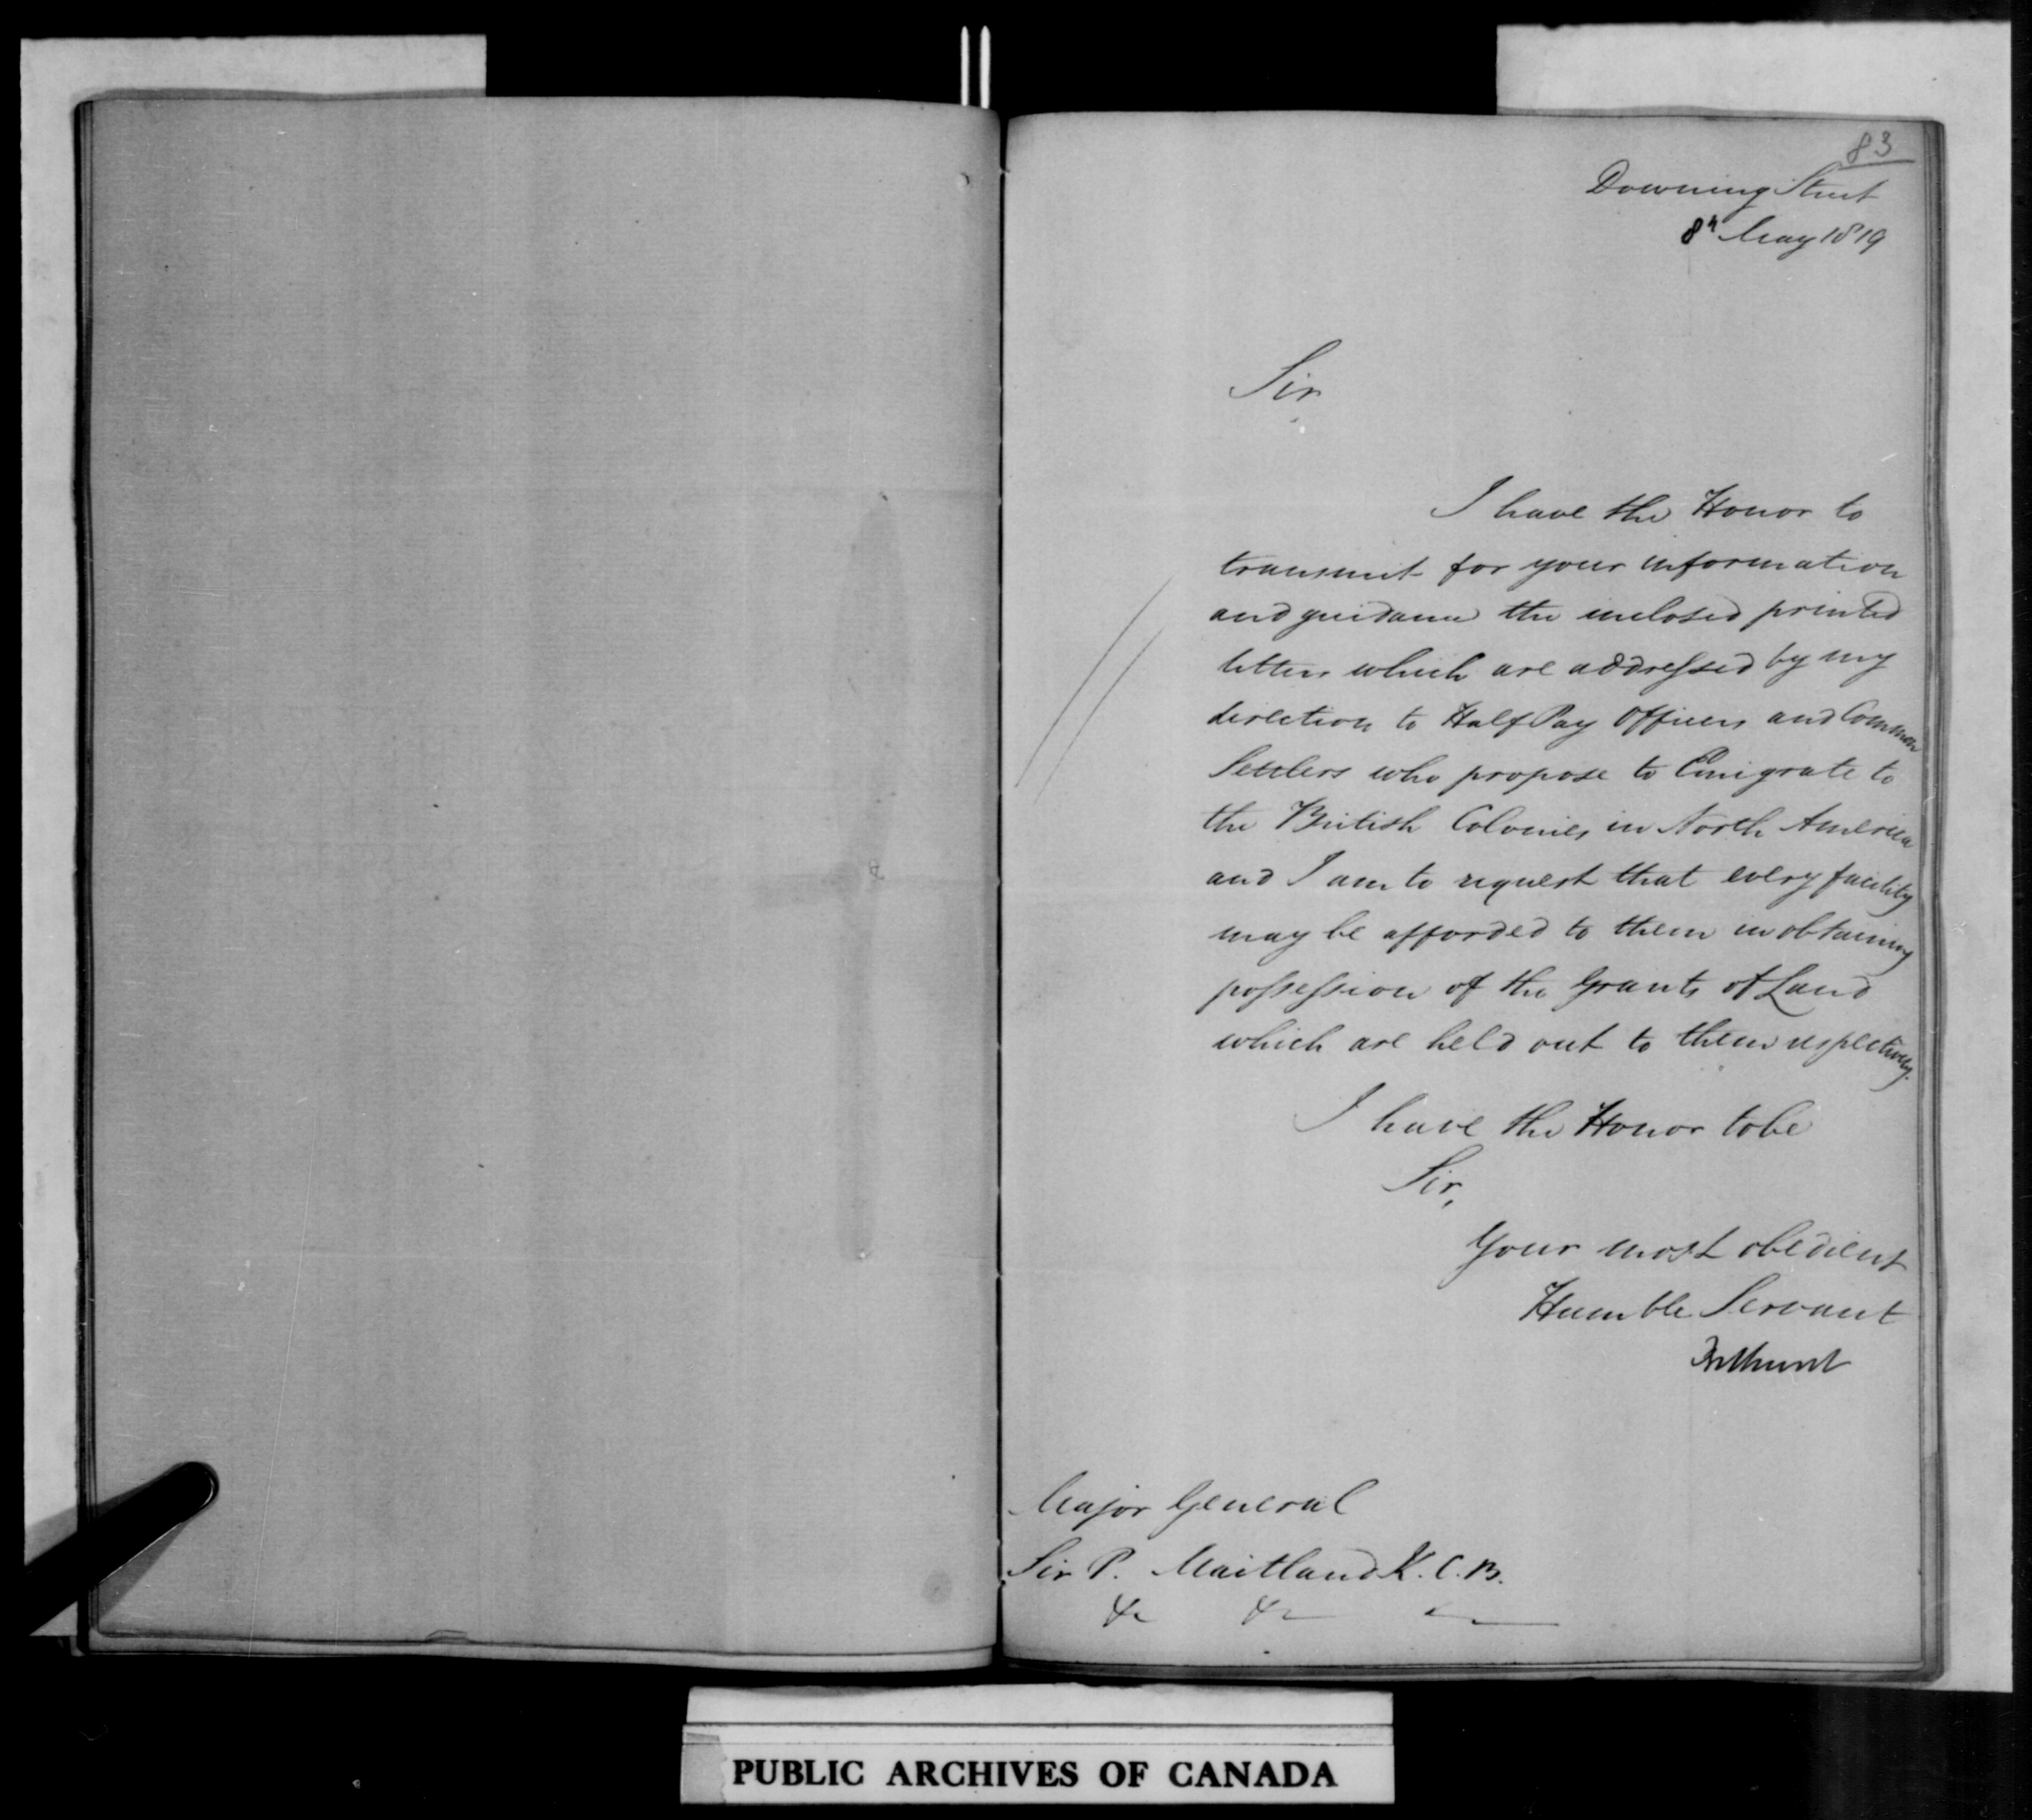 83
Downing Street
8th May 1819
Sir
I have the Honor to
transmit for your information
and guidance the inclosed printed
letters which are addressed by my
direction to Half Pay Officers and Common
Settlers who propose to Emigrate to
the British Colonies in North America
and I am to request that every facility
may be afforded to them in obtaining
possession of the Grants of Land
which are held out to them respectively.
I have the Honor to be
Sir,
Your most obedient
Humble Servant
Bathurst
Major General
Sir P. Maitland K.C.B.
&c &c
PUBLIC ARCHIVES OF CANADA